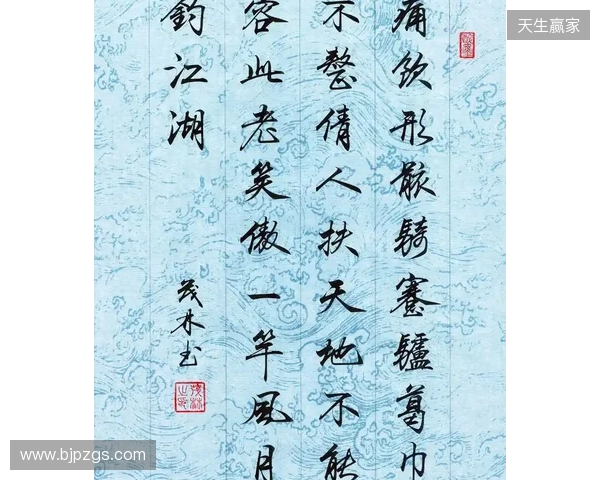 天生赢家
痛飲形骸騎蹇驢葛巾
不整倩人扶天地不能
容此老笑傲一竿風月
釣江湖
茂林书
www.bjpzgs.com